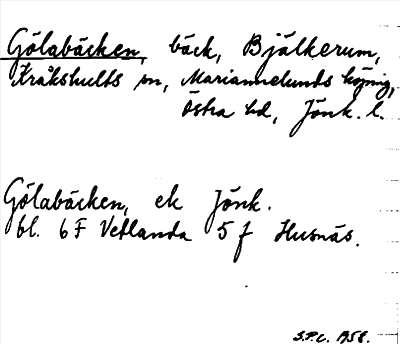 Gölabäcken, bäck, Bjälkerum,
Kråkshults sn, Mariannelunds köping,
Östra hd, Jönk. l.
Gölabäcken, ek Jönk.
bl. 6F Vetlanda 5 f Husnäs.
S.P.C. 1958.